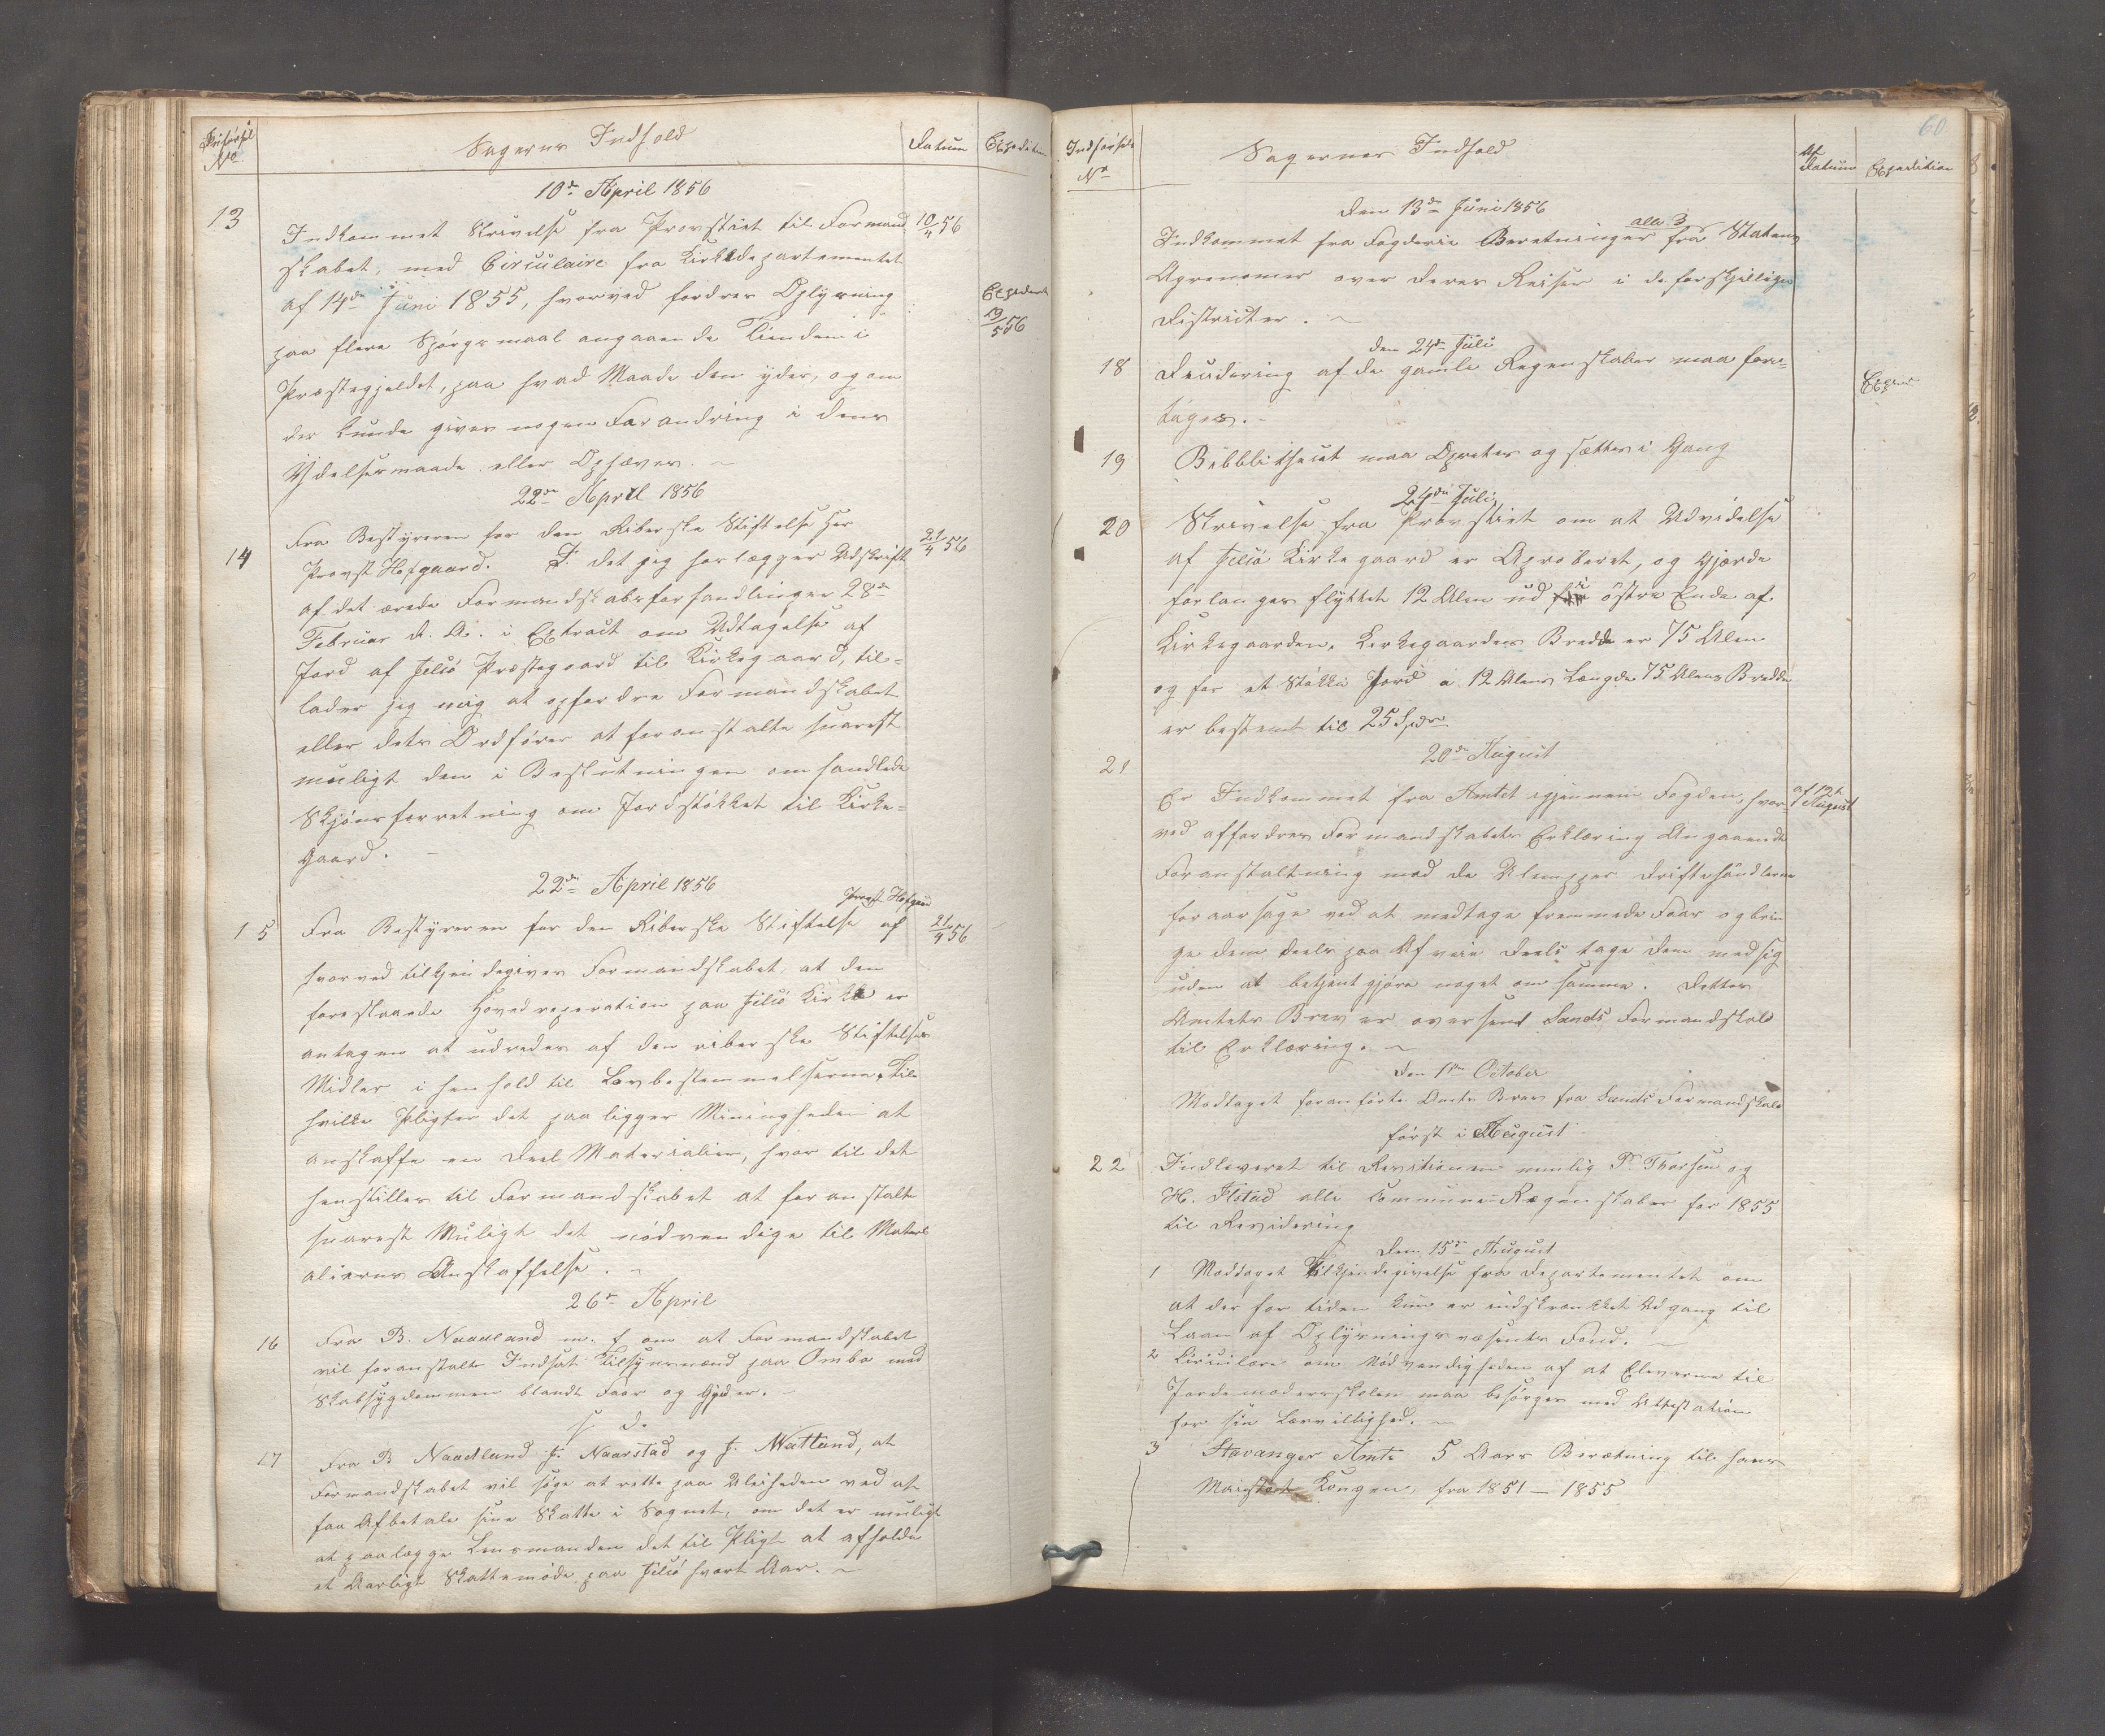 Indførsel
No
Sagernes Indhold
Datum
Expedition
10de April 1856
13
Indkommet Skrivelse fra Provstiet til Formand-
10/4 56
skabet, med Circulaire fra Kirkedepartementet
af 14de Juni 1855, hvorved fordres Oplysning
Expederet
19/5 56
paa flere Spørgsmaal angaaende Tienden i
Præstegjeldet, paa hvad Maade den ydes, og om
der kunde gives nogen Forandring i dens
Ydelsesmaade eller Ophæves. ~
22de April 1856
14
Fra Bestyreren for den Riberske Stiftelse Her
21/4 56
Provst Hofgaard. I det jeg forlægger Udskrift
af det ærede Formandskabsforhandlinger 28de
Februar d. A. i Extract om Udtagelse af
Jord af Jelsø Præstegaard til Kirkegaard, til-
lader jeg mig at opfordre Formandskabet
eller dets Ordfører at foranstalte snarest
muligt den i Beslutningen omhandlede
Skjønsforretning om Jordstøkket til Kirke-
gaard. –
22de April 1856
Provst Hofgaard
15
Fra Bestyreren for den Riberske Stiftelse af
21/4 56
hvorved tilkjendegives Formandskabet, at den
foreslaaede Hovedreperation paa Jelsø Kirke er
antagen at udredes af den riberske Stiftelses
Midler i henhold til Lovbestemmelserne. Til
hvilke Pligter det paaligger Menigheden at
anskaffe en Deel Materialier, hvor til det
henstilles til Formandskabet at foranstalte
snarest Muligt det nødvendige til Materi
aliernes Anskaffelse. ~
26de April
16
Fra B. Naadland m. f om at Formandskabet
vil foranstalte Indsat Tilsynsmænd paa Ombo mod
Skabsygdommen blandt Faar og Gjeder. –
s. d.
17
Fra B Naadland J. Naarstad og J. Watland, at
Formandskabet vil søge at rette paa Uleiheden ved at
faa Afbetale sine Skatte i Sognet, om det er muligt
at paalægge Lensmanden det til Pligt at afholde
et Aarligt Skattemøde paa Jelsø hvert Aar. ~
60
Indførsels
No
Sagernes Indhold
Af
Datum
Expedition
den 13de Juni 1856
alle 3
Indkommet fra Fogderie Beretninger fra Statens
Agronomer over deres Reiser i de forskjellige
Districter. ~
den 24de Juli
18
Decidering af de gamle Regenskaber maa fore-
Exped
tages. –
19
Bibblitheket maa Oprettes og sættes i Gang
24de Juli
20
Skrivelse fra Provstiet om at Udvidelse
af Jelsø Kirkegaard er Aproberet, og Gjærde
forlanges flyttet 12 Alen ud i østre Ende af
Kirkegaarden. Kirkegaardens Bredde er 75 Alen
og for et Støkke Jord a 12 Alens Længde 75 Alens Bredde
er bestemt til 25 Spdr
20de August
21
Er Indkommet fra Amtet igjennem Fogden, hvor
af 12te
August
ved affordres Formandskabets Erklæring Angaaende
Foranstaltning mod de Ulemper Driftehandlerne
foraarsage ved at medtage fremmede Faar og brin
ge dem deels paa Afveie Deels tage dem med sig
uden at betjent gjøre noget om samme. Dette
Amtets Brev er oversend Sands Formandskab
til Erklæring. ~
Den 1ste October
Modtaget foranførte Amts Brev fra Sands Formandskab
først i August
22
Indleveret til Revitionen nemlig P. Thorsen og
H. Ilstad alle Communens Rægenskaber for 1855
til Revidering
Den 15de August
1 Moddaget Tilkjendegivelse fra Departementet om
at der for tiden kun er indskrænkket Adgang til
Laan af Oplysningsvæsenets Fond. ~
2 Circulære om Nødvendigheden af at Eleverne til
Jordemoderskolen maa besørges med Attestation
for sin Lærvillighed. ~
3 Stavanger Amts 5 Aars Beretning til hans
Majestæt Kongen, fra 1851 – 1855